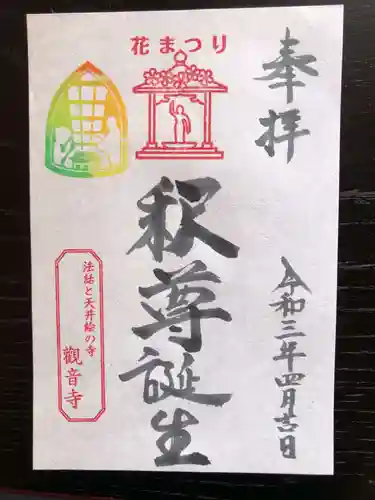 奉拝
花まつり
釈尊誕生
令和三年四月吉日
法話と天井絵の寺
観音寺